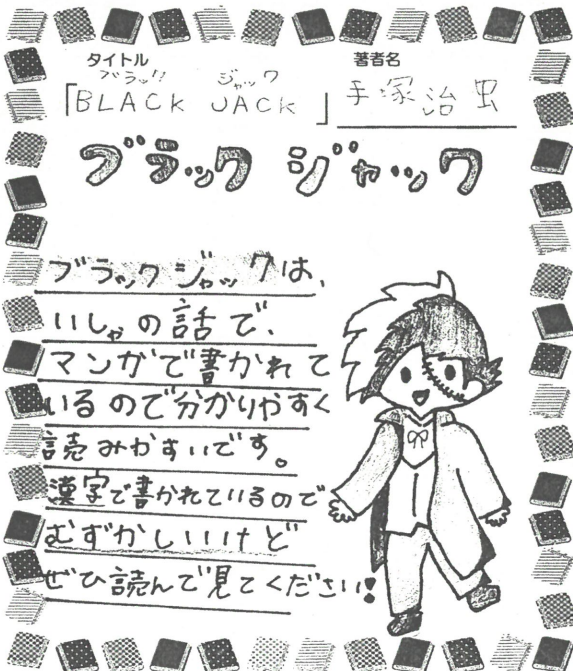 タイトル
著者名
ブラック ジャック
「BLACK JACK」
手塚治虫
ブラック ジャック
ブラックジャックは、
いしゃの話で、
マンガで書かれて
いるので分かりやすく
読みやすいです。
漢字で書かれているので
むずかしいけど
ぜひ読んで見てください!